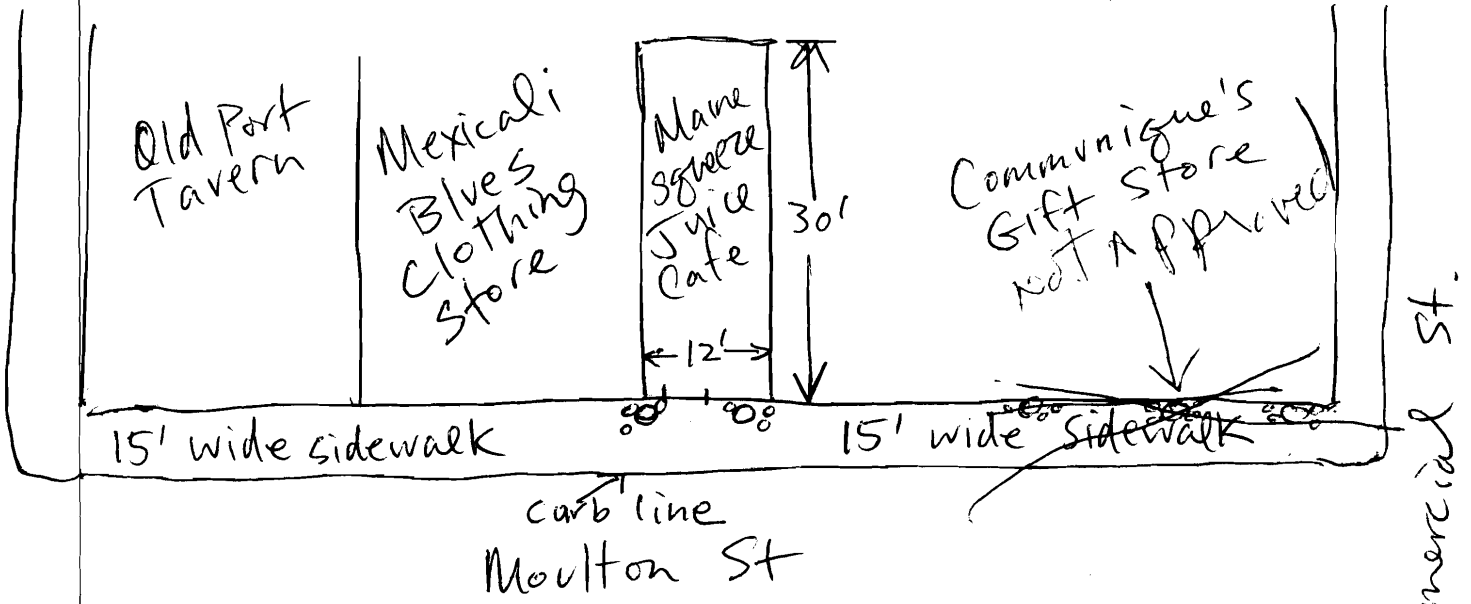 Old Port
Tavern
Mexicali
Blues
Clothing
Store
Maine
Squeeze
Juice
Cafe
12'
30'
Communique's
Gift Store
Not Approved
15' wide sidewalk
15' wide sidewalk
curb line
Moulton St
mercial St.